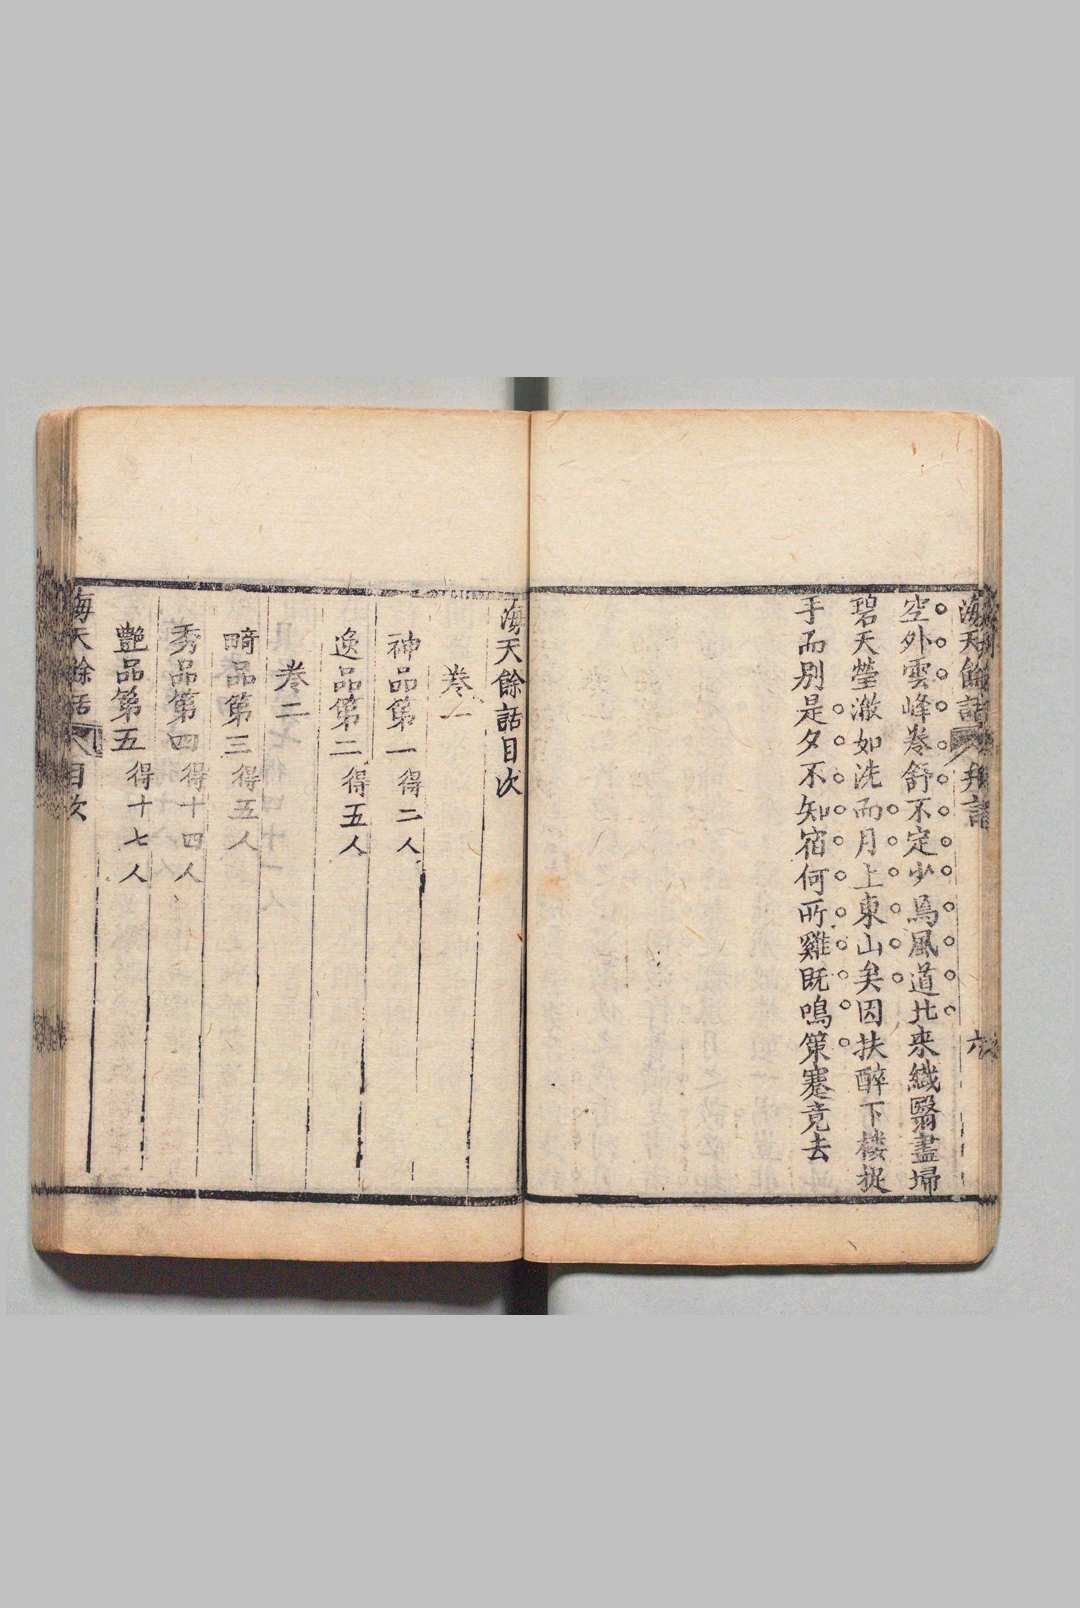 海天餘話
弁語
六
空外雲峰卷舒不定少焉風道北來纖翳盡掃
碧天瑩澈如洗而月上東山矣因扶醉下樓捉
手而別是夕不知宿何所雞既鳴策蹇竟去
海天餘話目次
卷一
神品第一 得二人
逸品第二 得五人
卷二
畸品第三 得五人
秀品第四 得十四人
艷品第五 得十七人
海天餘話
目次